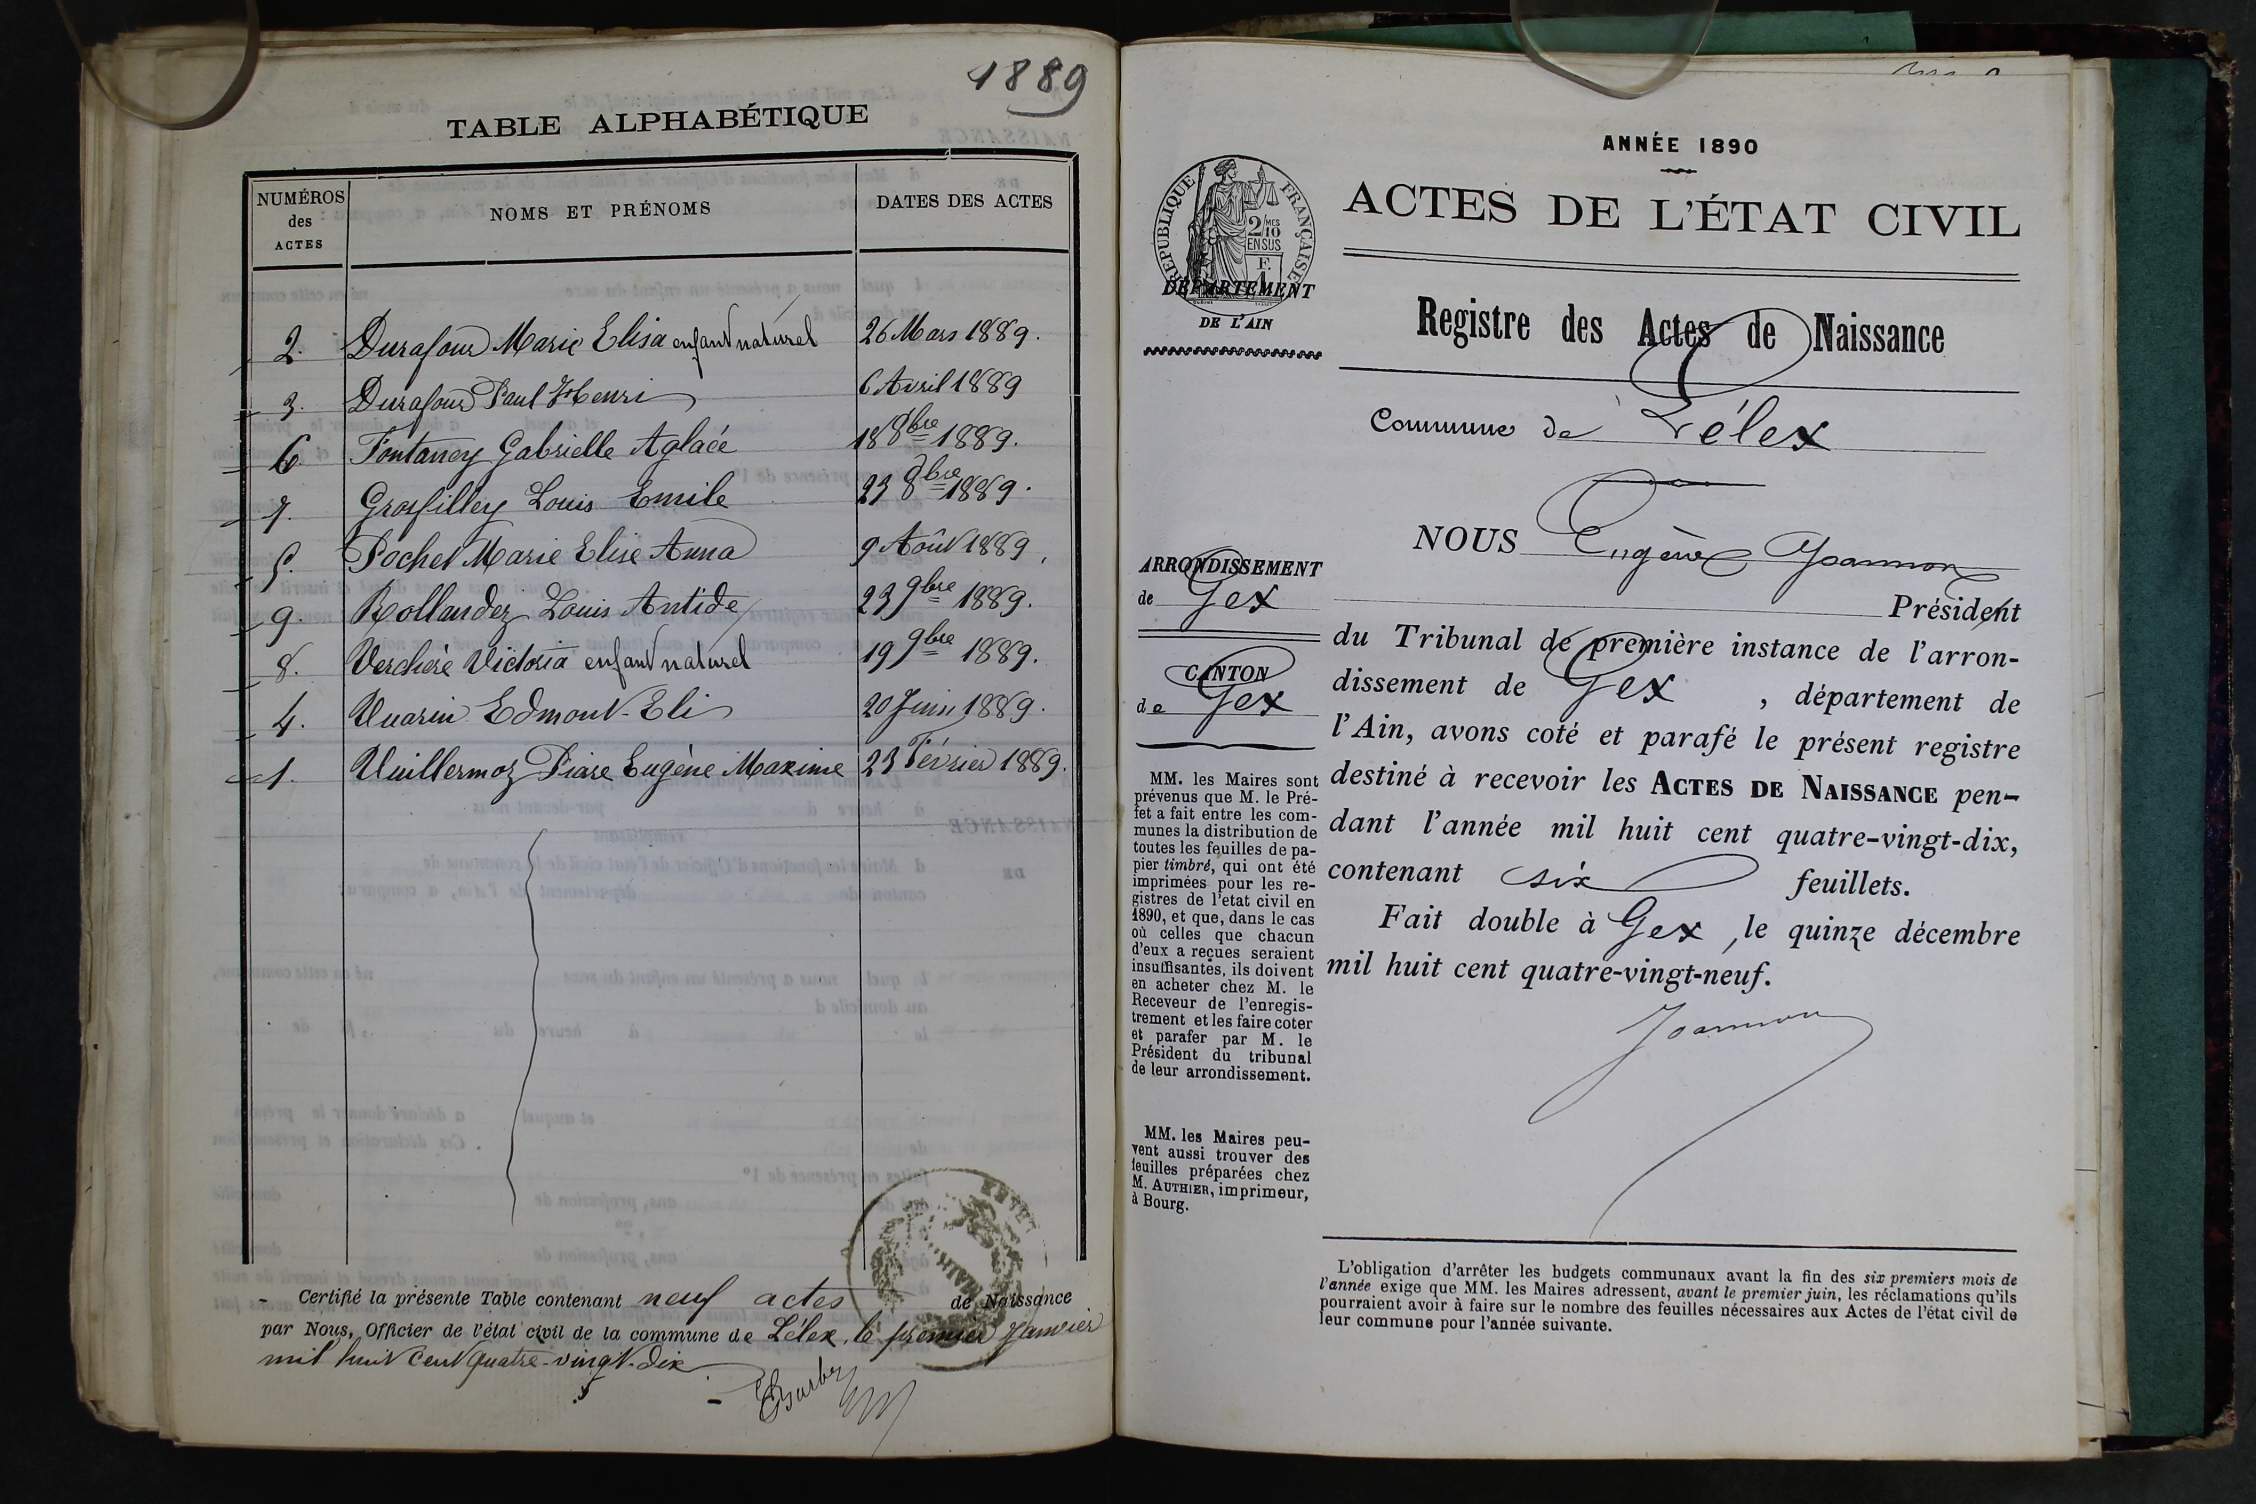 1889
TABLE ALPHABÉTIQUE
NUMÉROS des ACTES
NOMS ET PRÉNOMS
DATES DES ACTES
2. Durafour Marie Elisa enfant naturel 26 Mars 1889.
3. Durafour Paul Henri 6 Avril 1889
6. Fontaney Gabrielle Aglaée 18 8bre 1889.
7. Grosfilley Louis Emile 23 8bre 1889.
5. Pochet Marie Elise Anna 9 Août 1889
9. Rollandez Louis Antide 23 9bre 1889.
8. Verchère Victoria enfant naturel 19 9bre 1889.
4. Vuarin Edmont Eli 20 Juin 1889.
1. Vuillermoz Eugène Maxime 23 Février 1889.
Certifié la présente Table contenant neuf actes de Naissance
par Nous, Officier de l'état civil de la commune de Lélex, le premier Janvier
mil huit cent quatre-vingt-dix
MAIRIE
ANNÉE 1890
RÉPUBLIQUE FRANÇAISE
2/10 MES
EN SUS
F.
1
ACTES DE L'ÉTAT CIVIL
DÉPARTEMENT
DE L'AIN
Registre des Actes de Naissance
Commune de Lélex
NOUS Eugène Joannon
Président
du Tribunal de première instance de l'arron-
dissement de Gex, département de
l'Ain, avons coté et parafé le présent registre
destiné à recevoir les ACTES DE NAISSANCE pen-
dant l'année mil huit cent quatre-vingt-dix,
contenant six feuillets.
Fait double à Gex, le quinze décembre
mil huit cent quatre-vingt-neuf.
Joannon
ARRONDISSEMENT
de Gex
CANTON
de Gex
MM. les Maires sont
prévenus que M. le Pré-
fet a fait entre les com-
munes la distribution de
toutes les feuilles de pa-
pier timbré, qui ont été
imprimées pour les re-
gistres de l'etat civil en
1890, et que, dans le cas
où celles que chacun
d'eux a reçues seraient
insuffisantes, ils doivent
en acheter chez M. le
Receveur de l'enregis-
trement et les faire coter
et parafer par M. le
Président du tribunal
de leur arrondissement.
MM. les Maires peu-
vent aussi trouver des
feuilles préparées chez
M. AUTHIER, imprimeur,
à Bourg.
L'obligation d'arrêter les budgets communaux avant la fin des six premiers mois de
l'année exige que MM. les Maires adressent, avant le premier juin, les réclamations qu'ils
pourraient avoir à faire sur le nombre des feuilles nécessaires aux Actes de l'état civil de
leur commune pour l'année suivante.